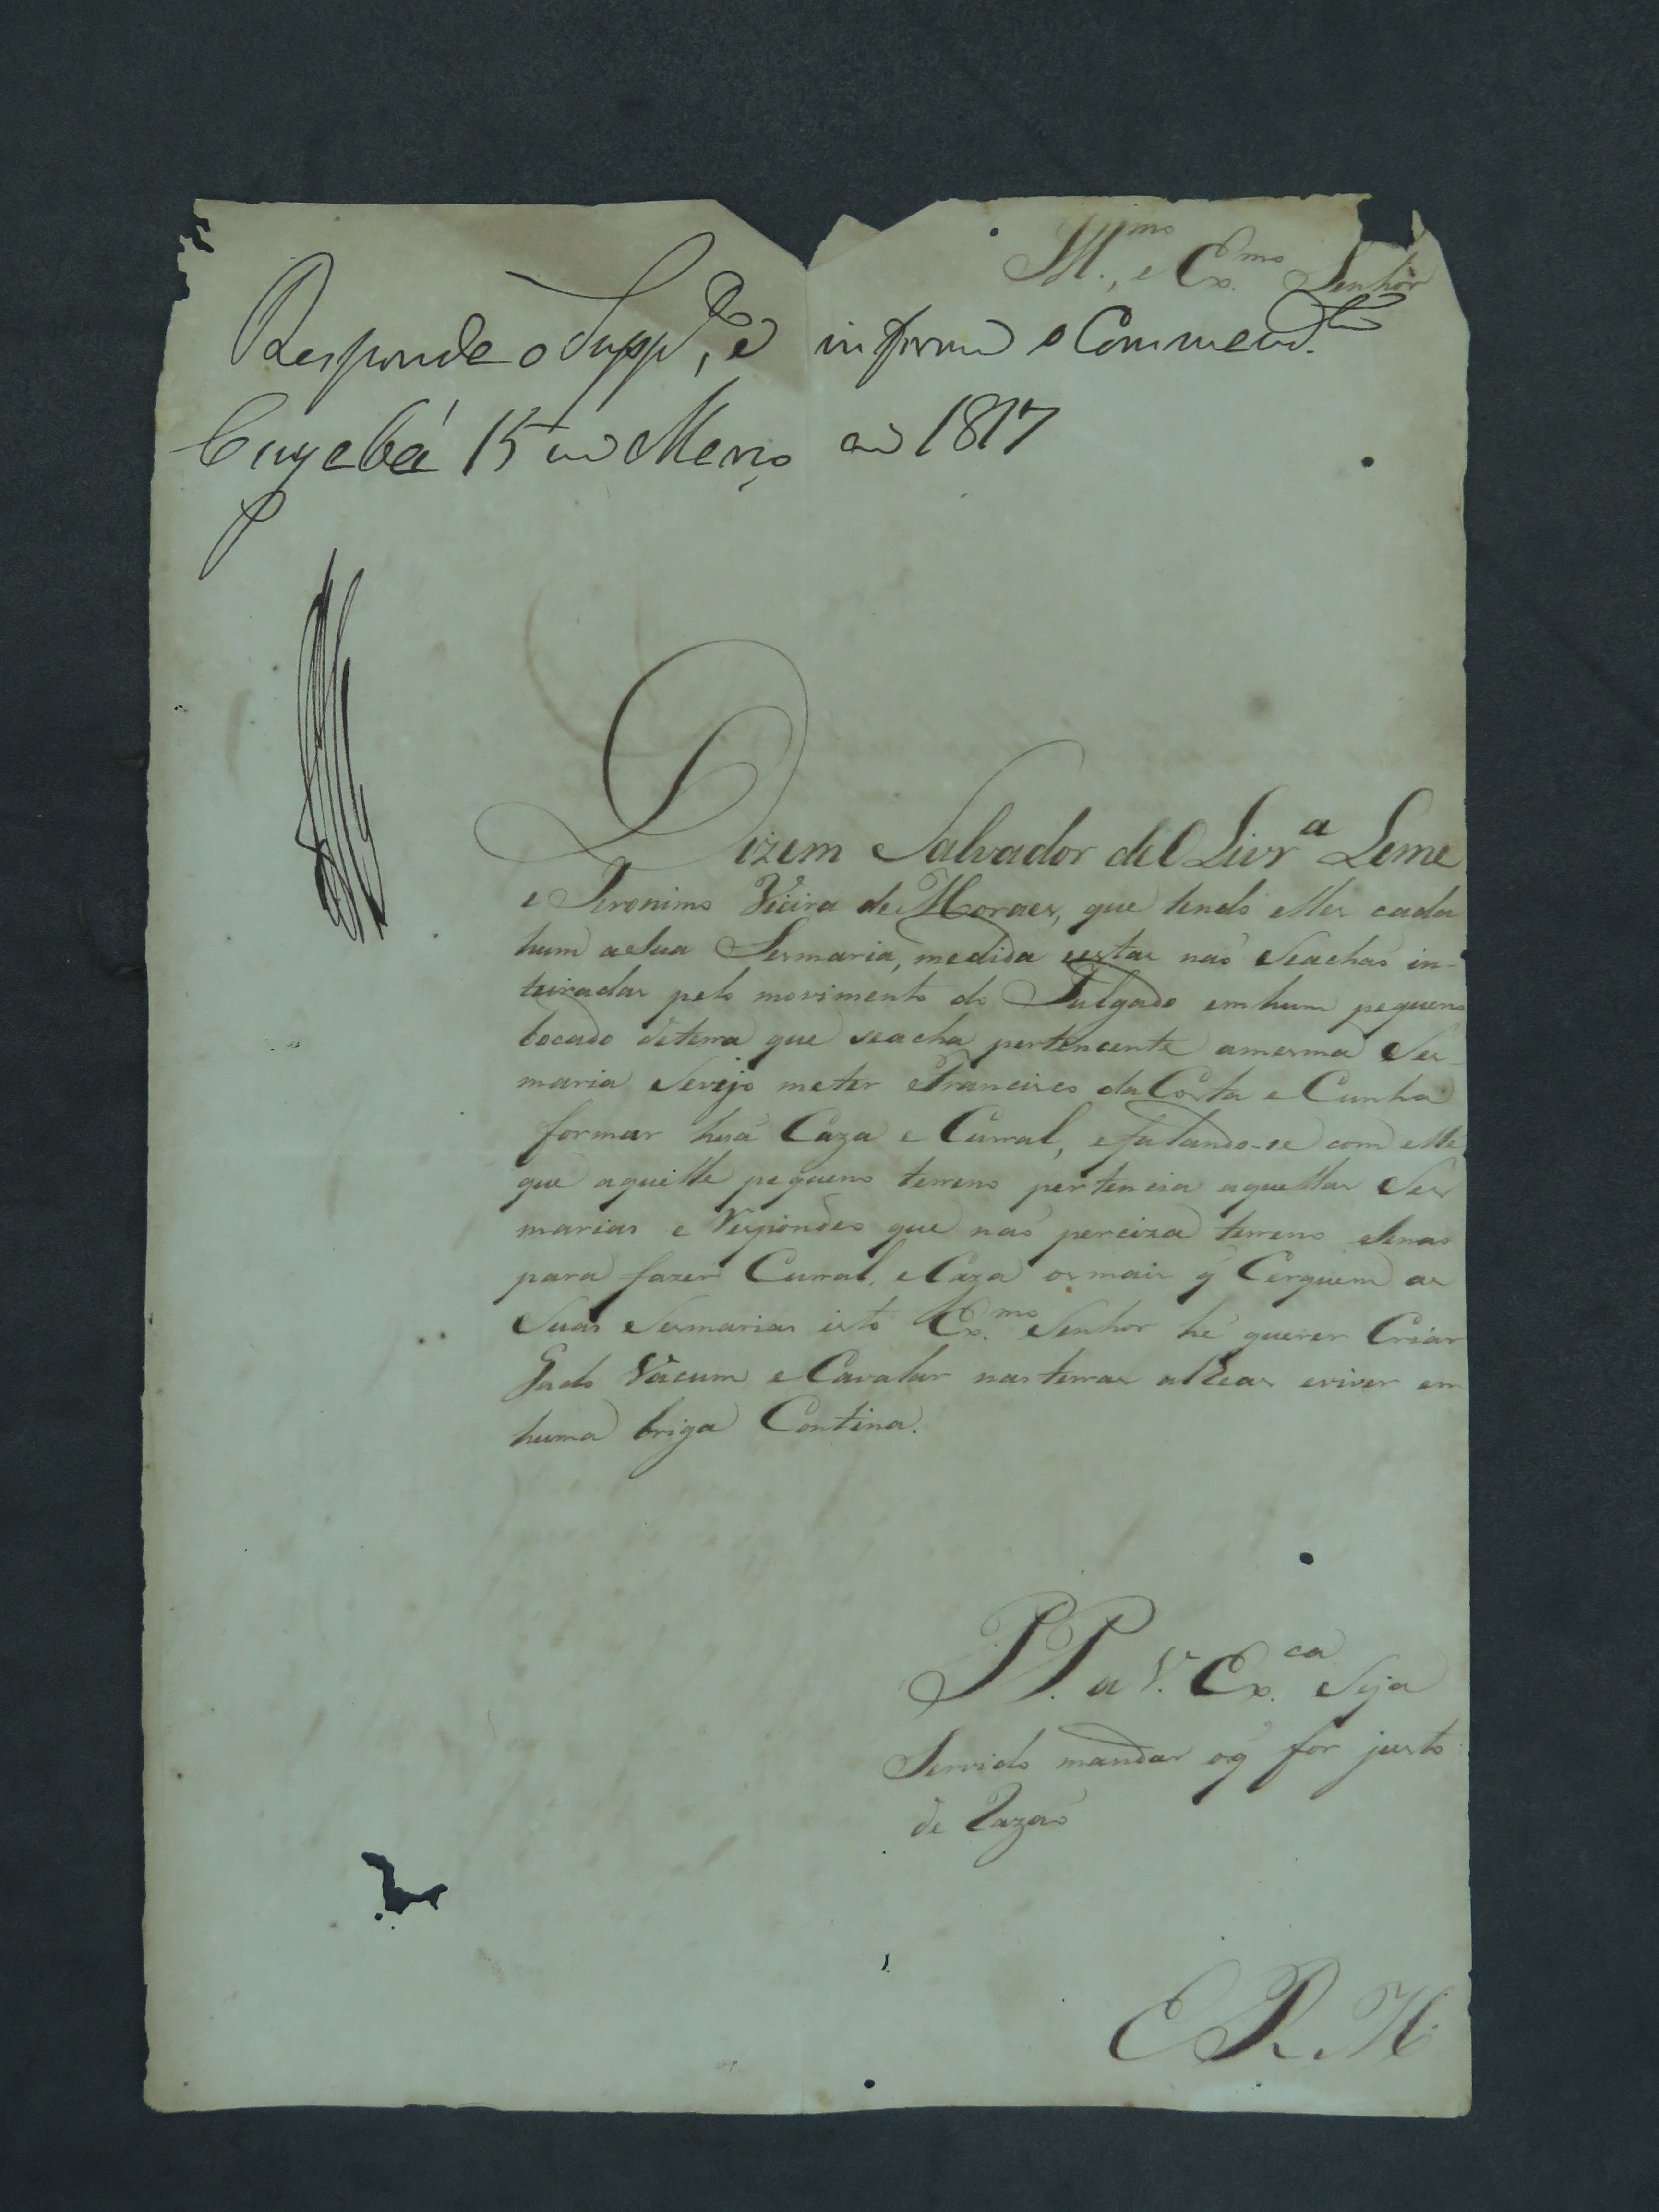 Ill.mo, e Ex.mo Senhor
Responde o Supp.do, e informe o Commend.te
Cuyabá 15 de Março de 1817
Dizem Salvador de Olivr.a Leme
e Jeronimo Vieira de Moraes, que tendo elles cada
hum a sua Sesmaria, medida estas naõ se achaõ in-
teiradas pelo movimento do Julgado em hum pequeno
bocado de terra que se acha pertencente a mesma Ses-
maria Se vejo meter Francisco da Costa e Cunha
formar huã Caza e Curral, e falando-se com elle
que aquelle pequeno terreno pertencia aquellas Ses
marias e Respondeo que naõ perciza terreno senaõ
para fazer Curral, e Caza os mais q̃ Cerquem as
Suas Sesmarias isto Ex.mo Senhor hé querer Criar
Gado Vacum e Cavalar nas terras alheas e viver em
huma briga Contina.
P.P. a V. Ex.ca Seja
Servido mandar oq̃ for justo
de Razaõ
E R. M.